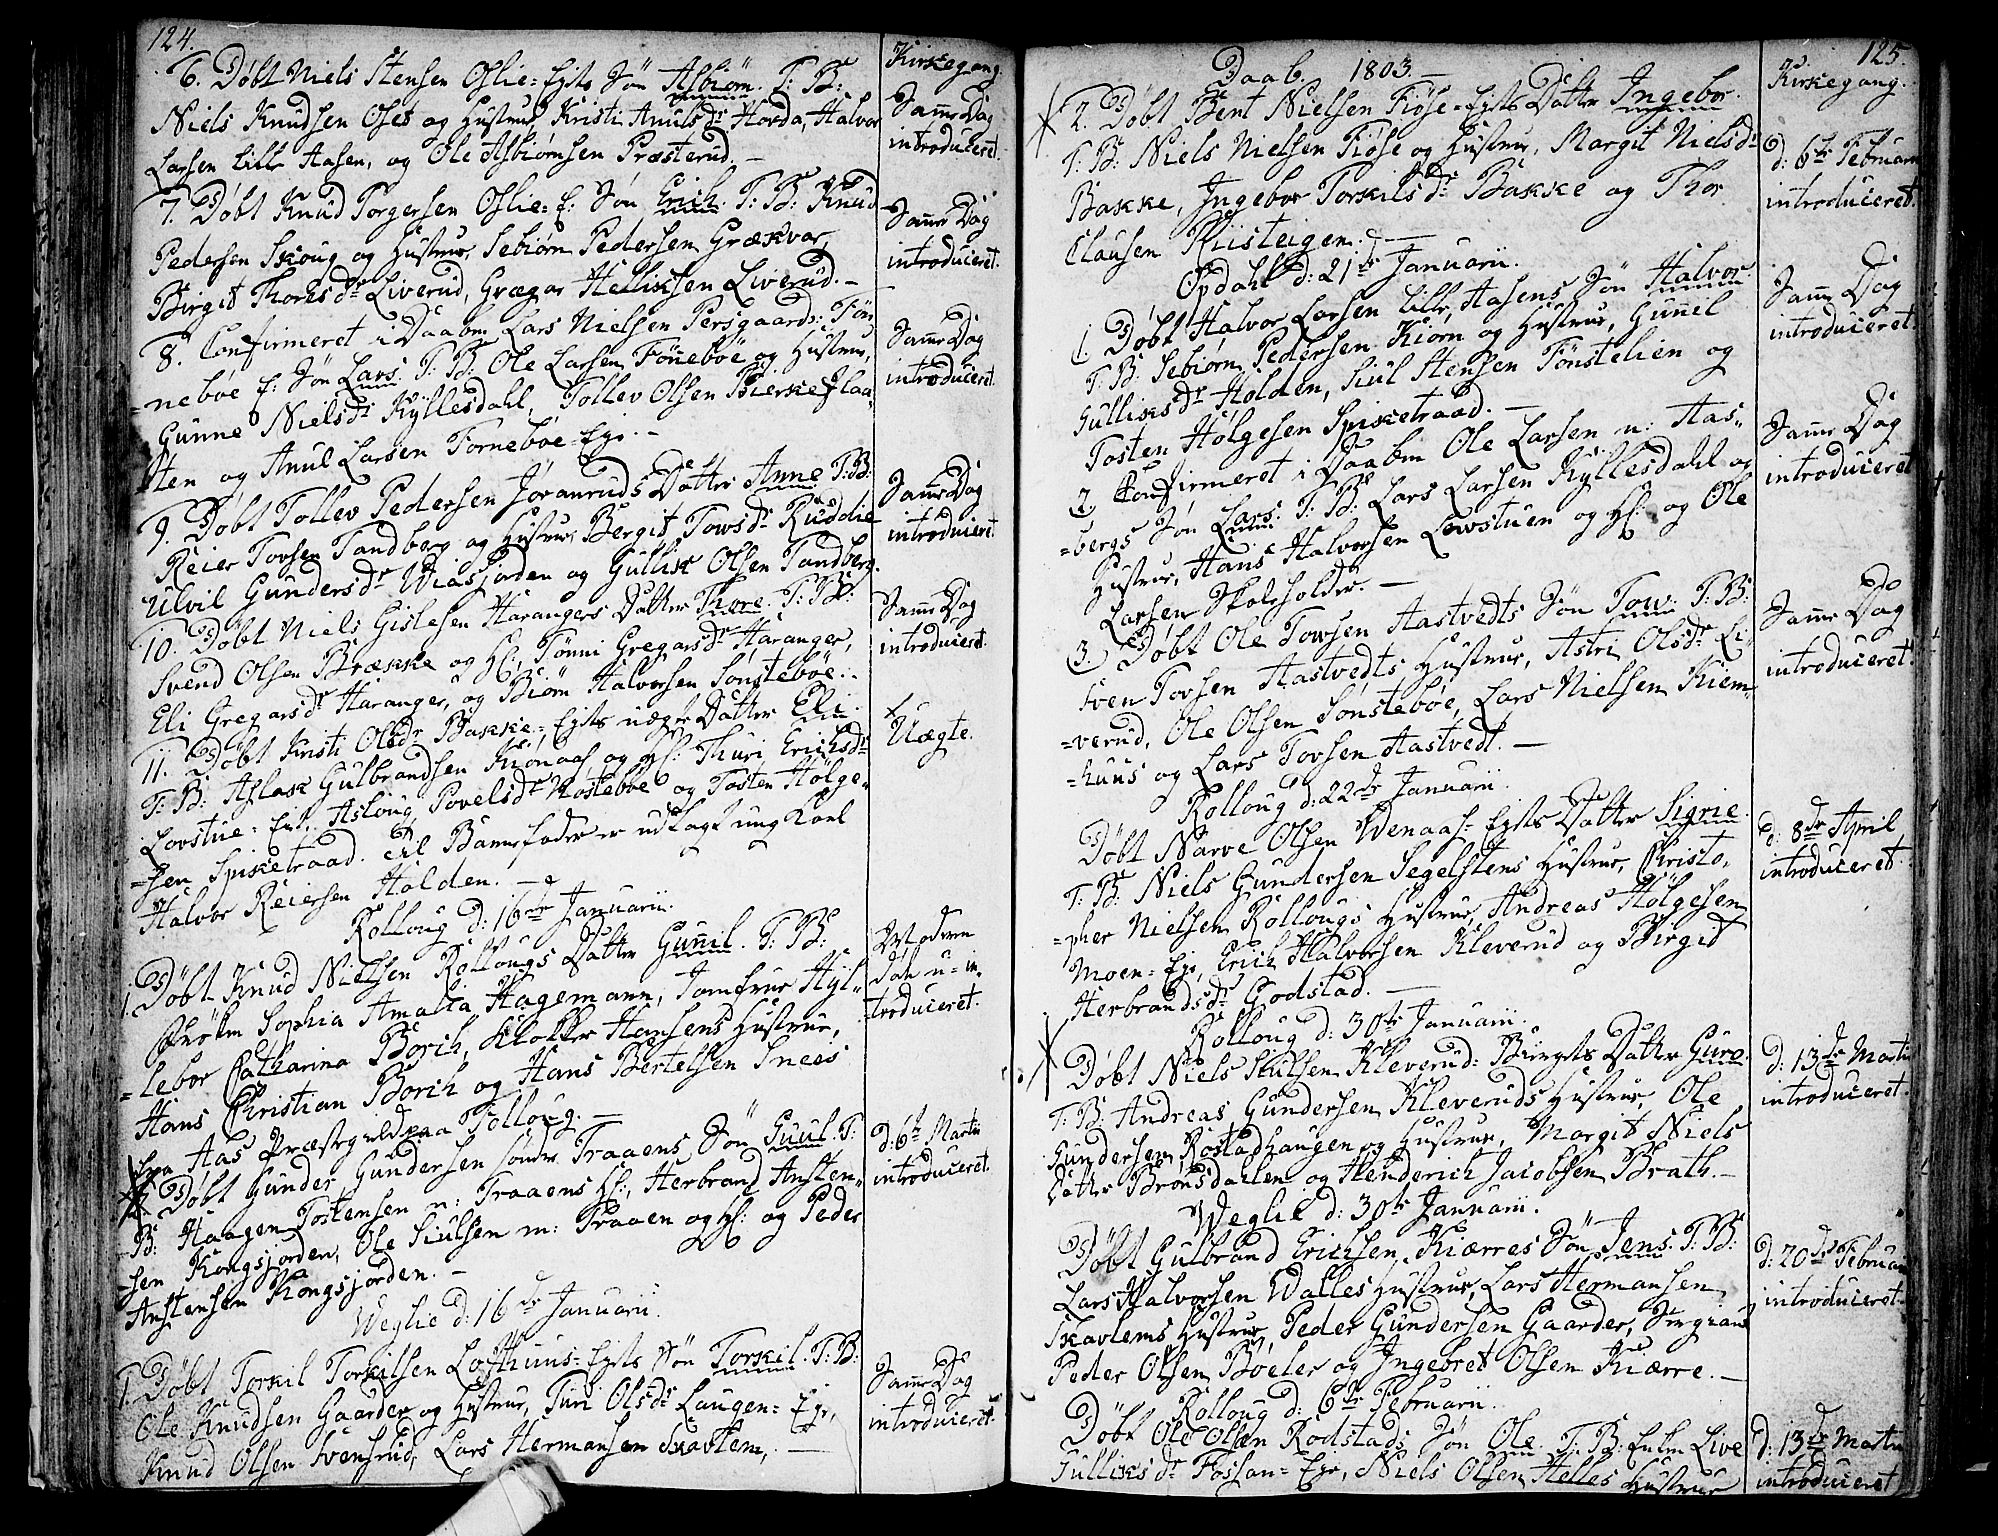 124.
Kirkegang.
6. Døbt Niels Stensen Oslie=Eyets Søn Asbiørn. T: B:
Niels Knudsen Oset og Hustrue, Kristi Anulsdr Horda, Halvor
Larsen Lille Aasen, og Ole Asbiørnsen Præsterud. —
Samme Dag
introduceret.
7. Døbt Knud Torgersen Oslie= E: Søn Erich. T: B: Knud
Pedersen Skoug og Hustrue, Sebiørn Pedersen Grækvar,
Birgit Thorsdr Liverud, Grægar Helliksen Liverud. —
Samme Dag
introduceret.
8. Confirmeret i Daaben Lars Nielsen Persgaards: Føn
=nebøe E: Søn Lars. T: B: Ole Larsen Fønnebøe og Hustrue,
Gunne Nielsdr Kyllesdahl, Tollev Olsen Bierkeflaa=
ten og Anul Larsen Fornebøe=Eye. —
Samme Dag
introduceret.
9. Døbt Tollev Pedersen Joranruds Datter Anne. T: B:
Reier Tovsen Tandberg og Hustrue, Bergit Towsdr Ruddie
Ulvil Gundersdr Wiasjorden og Gullik Olsen Tandberg.
Samme Dag
introduceret.
10. Døbt Niels Gislesen Harangers Datter Thore. T: B:
Svend Olsen Brække og H:, Tønni Gregarsdr Haranger,
Eli Gregarsdr Haranger, og Biørn Halvorsen Sønstebøe. —
Samme Dag
introduceret.
11. Døbt Kristi Olsdr Bakke=Eyets uægte Datter Eli.
T: B: Aslak Gulbrandsen Kiønaas og H: Thuri Erichsdr
Lovstue=Eyet, Aslaug Povelsdr Nostebøe og Tosten Hølge=
=sen Spiketraad. Til Barnefader er udlagt ung Karl
Halvor Reiersen Holden. —
Uægte.
Rolloug d: 16de Januarii.
1. Døbt Knud Nielsen Rollougs Datter Gunnil. T: B:
Frøken Sophia Amalia Hagemann, Jomfrue Hyl=
=lebor Catharina Borch, Klokker Hansens Hustrue,
Hans Christian Borch og Hans Bertelsen Snees
fra Aas Præstegield paa Tolloug. —
Moderen
død u=in
troduceret.
2. Døbt Gunder Gundersen søndre Traaens Søn Guul. T:
B: Haagen Tostensen n: Traaens H:, Herbrand Ansten=
=sen Kongsjorden, Ole Siulsen m: Traaen og H: og Peder
Anstensen Kongsjorden. —
d: 6te Martii
introduceret.
Weglie d: 16de Januarii.
1. Døbt Torkil Torkilsen Lofthuus=Eyets Søn Torkil. T: B:
Ole Knudsen Gaarder og Hustrue, Turi Olsdr Laugen=Eye,
Knud Olsen Svensrud, Lars Hermansen Skavlem, —
Samme Dag
introduceret.
125.
Daab. 1803. —
Kirkegang.
2. Døbt Bent Nielsen Fiøse=Eyets Datter Ingebor.
T: B: Niels Nielsen Fiøse og Hustrue, Margit Nielsdr
Bakke, Ingebor Torkilsdr Bakke og Thor
Clausen Riisteigen. —
d: 6te Februarii
introduceret.
Opdahl d: 21de Januarii.
1. Døbt Halvor Larsen Lille Aasens Søn Halvor.
T: B: Sebiørn Pedersen Kiørn og Hustrue, Gunnil
Gulliksdr Holden, Siul Stensen Fønstelien og
Tosten Hølgesen Spiketraad. —
Samme Dag
introduceret.
2. Confirmeret i Daaben Ole Larsen n: Aas=
=bergs Søn Lars. T: B: Lars Larsen Kyllesdahl og
Hustrue, Hans Halvorsen Lowstuen og H: og Ole
Larsen Skoleholder. —
Samme Dag
introduceret
3. Døbt Ole Towsen Aastvedts Søn Tow. T: B:
Sven Tovsen Aastvedts Hustrue, Astri Olsdr Li=
=verud, Ole Olsen Sønstebøe, Lars Nielsen Kiem=
=huus og Lars Tovsen Aastvedt. —
Samme Dag
introduceret.
Rolloug d: 22de Januarii.
Døbt Narve Olsen Wenaas=Eyets Datter Sigrie.
T: B: Niels Gundersen Segelstens Hustrue, Christo=
=pher Nielsen Rollougs Hustrue, Andreas Hølgesen
Moen=Eye, Erich Halvorsen Kleverud og Birgit
Herbrandsdr Godstad. —
d: 8de April
introduceret.
Rolloug d: 30te Januarii.
Døbt Niels Siulsen Kleverud: Biørgets Datter Guro.
T: B: Andreas Gundersen Kleveruds Hustrue, Ole
Gundersen Rostadhaugen og Hustrue, Margit Niels
Datter Brønsdahlen og Henderich Jacobsen Brath. —
d: 13de Martii
introduceret.
Weglie d: 30te Januarii.
Døbt Gulbrand Erichsen Kiærres Søn Jens. T: B:
Lars Halvorsen Walles Hustrue, Lars Hermansen
Skavlems Hustrue, Peder Gundersen Gaarder, Sergiant
Peder Olsen Bøeler og Ingebret Olsen Kiærre. —
d: 20de Februarii
introduceret.
Rolloug d: 6te Februarii.
Døbt Ole Olsen Rodstads Søn Ole. T: B: Enken Live
Gulliksdr Fossan=Eye, Niels Olsen Helles Hustrue
d: 13de Martii
introduceret.